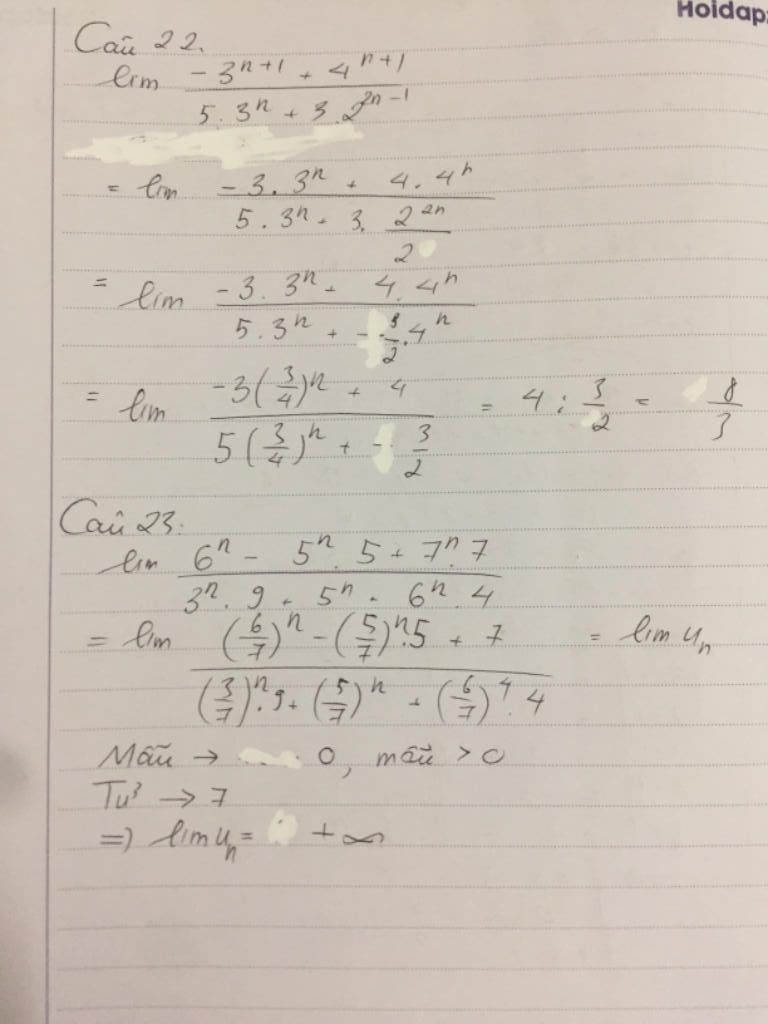 Hoidap
Câu 22.
lim (-3^{n+1} + 4^{n+1}) / (5.3^n + 3.2^{2n-1})
= lim (-3.3^n + 4.4^n) / (5.3^n + 3. 2^{2n}/2)
= lim (-3.3^n + 4.4^n) / (5.3^n + 3/2.4^n)
= lim (-3(3/4)^n + 4) / (5(3/4)^n + 3/2) = 4 : 3/2 = 8/3
Câu 23:
lim (6^n - 5^n.5 + 7^n.7) / (3^n.9 + 5^n + 6^n.4)
= lim ((6/7)^n - (5/7)^n.5 + 7) / ((3/7)^n.9 + (5/7)^n + (6/7)^4.4) = lim u_n
Mẫu → 0, mẫu > 0
Tử → 7
=) lim u_n = +∞